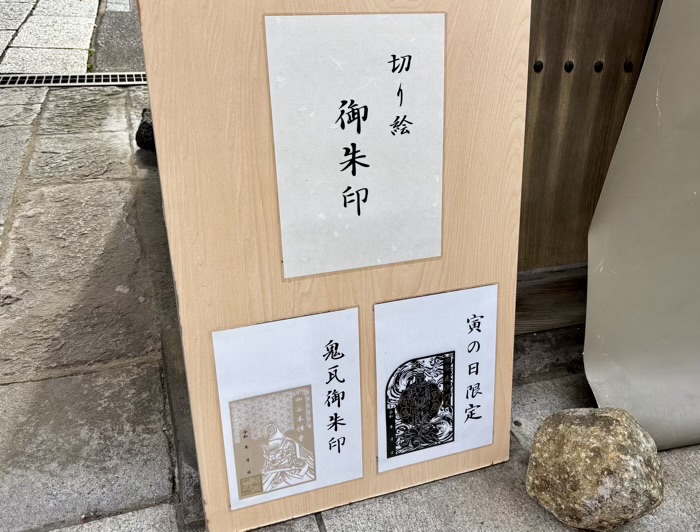 切り絵
御朱印
寅の日限定
鬼瓦御朱印